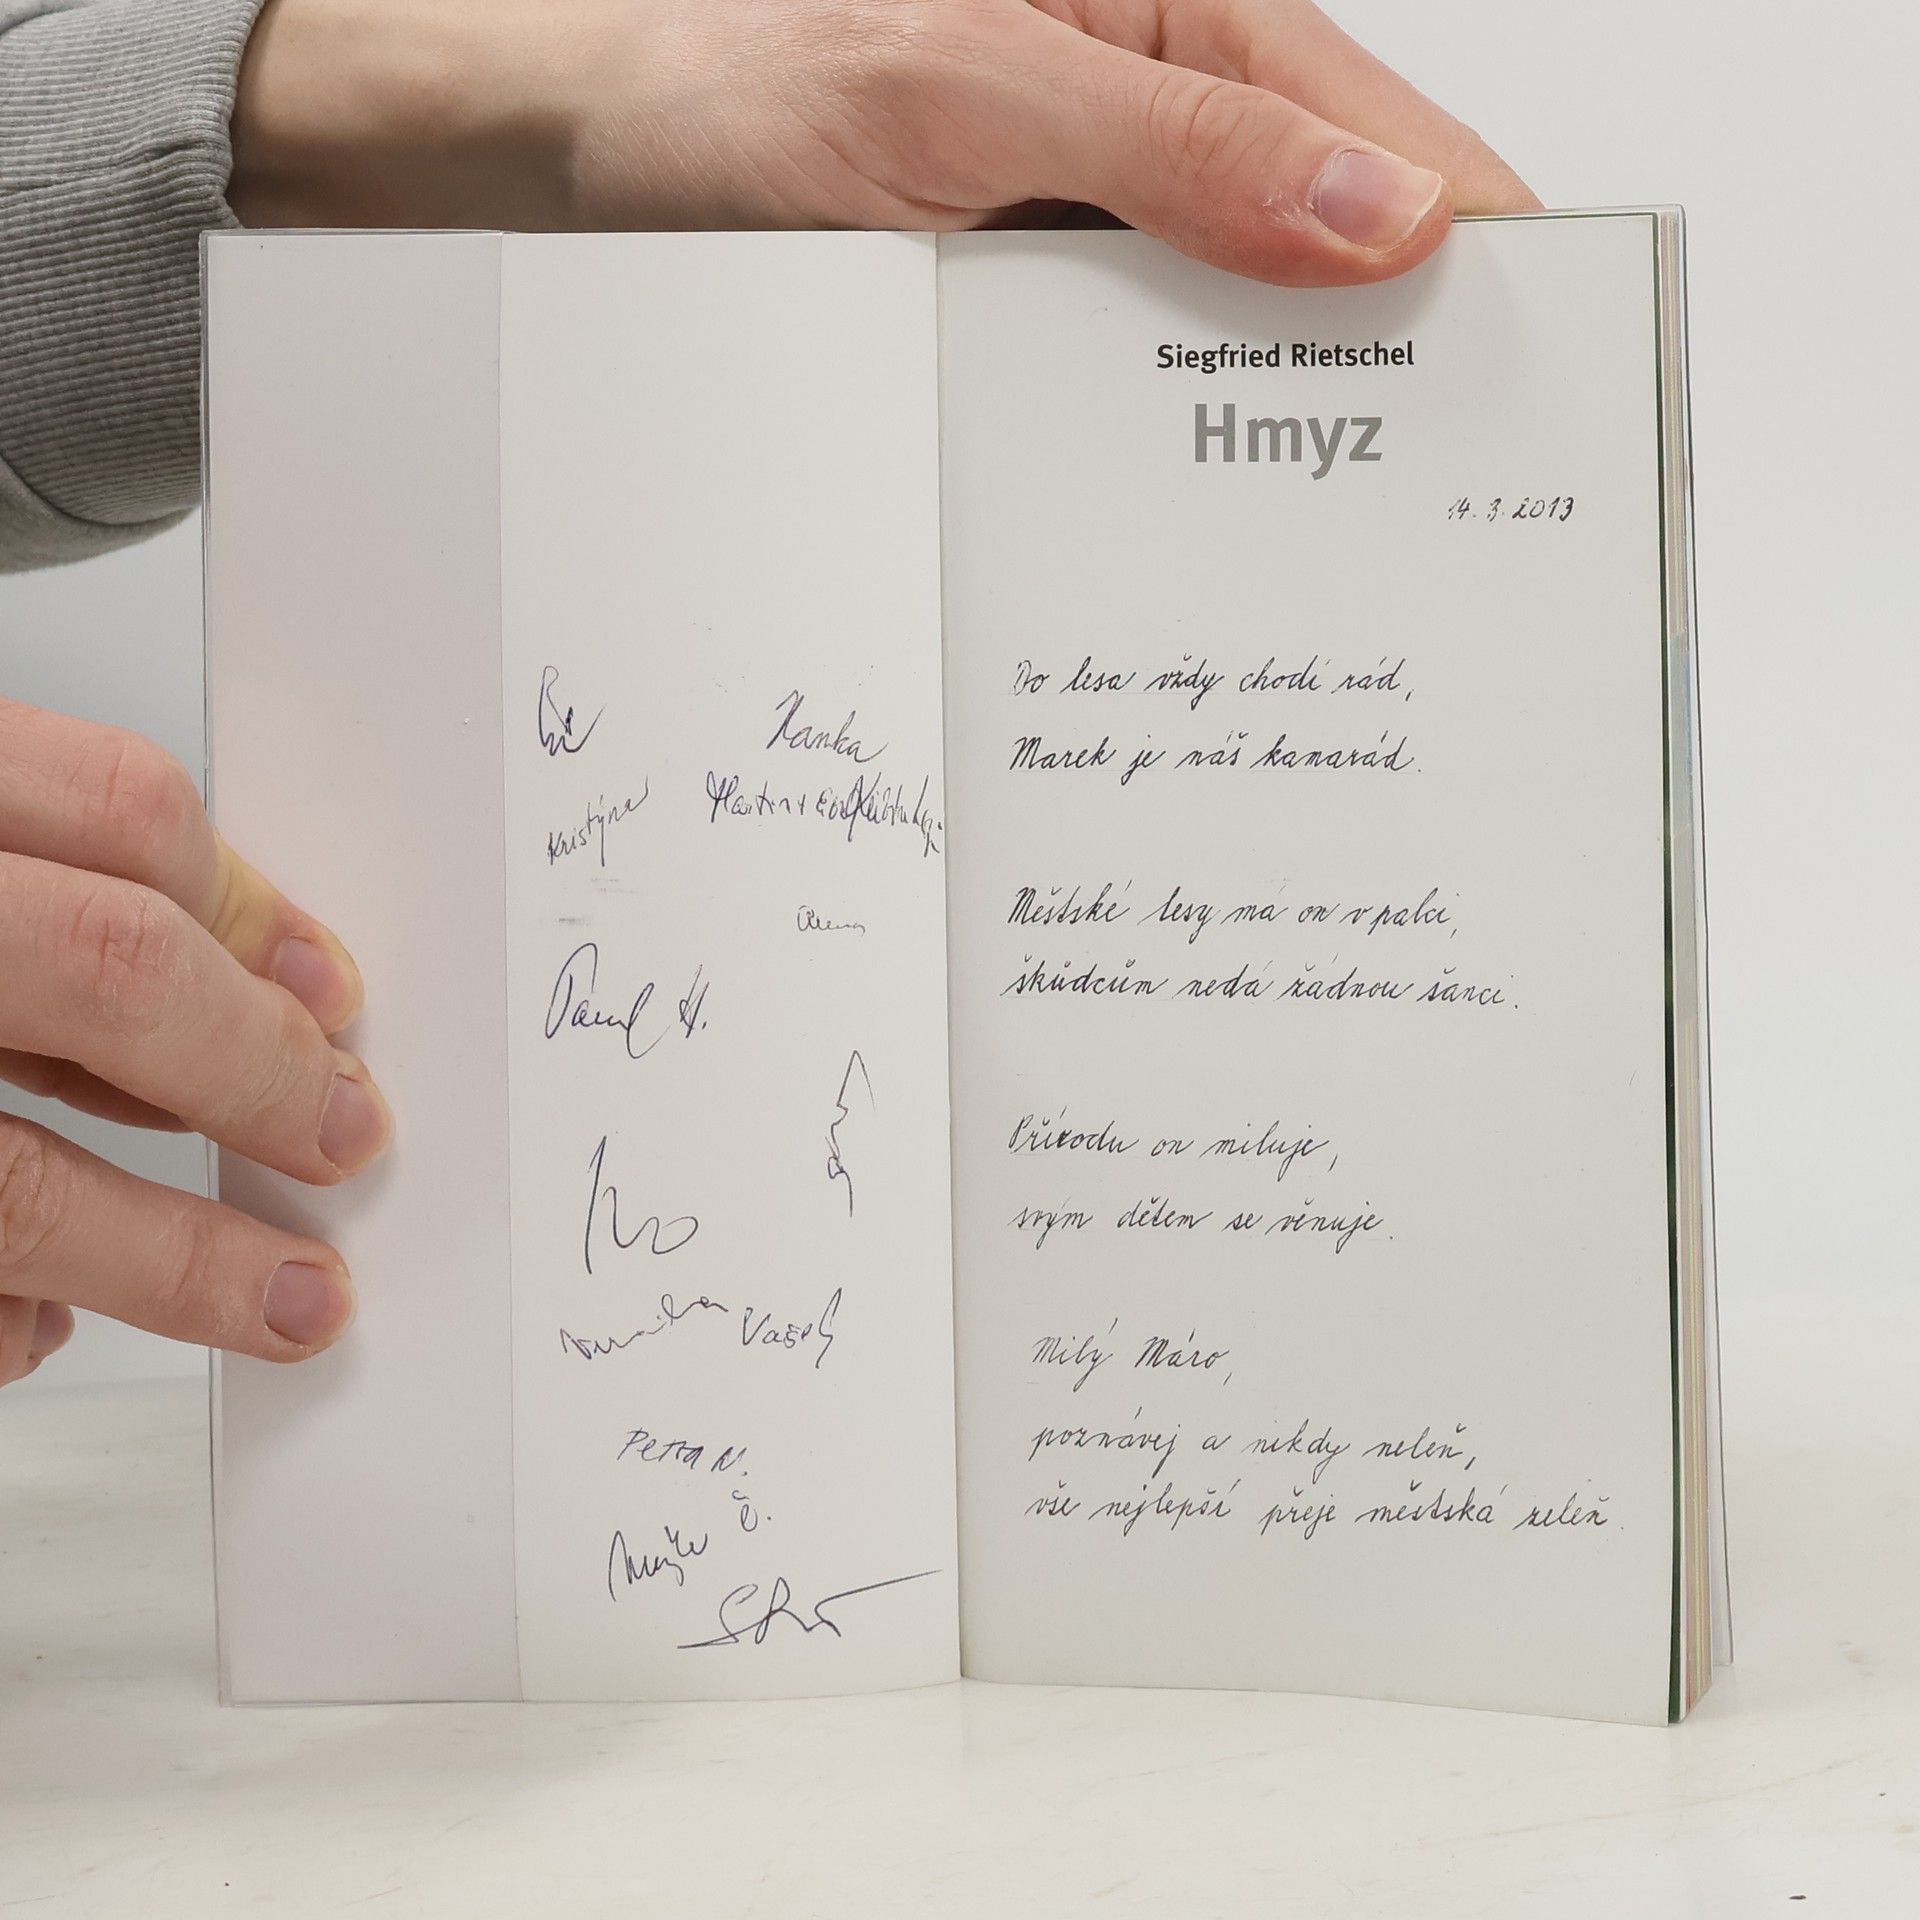 Hanka
Kristýna
Pavel H.
Vašek
Petra N.
Č.
Siegfried Rietschel
Hmyz
14. 3. 2013
Do lesa vždy chodí rád,
Marek je náš kamarád.
Městské lesy má on v palci,
škůdcům nedá žádnou šanci.
Přírodu on miluje,
svým dětem se věnuje.
Milý Máro,
poznávej a nikdy neleň,
vše nejlepší přeje městská zeleň.